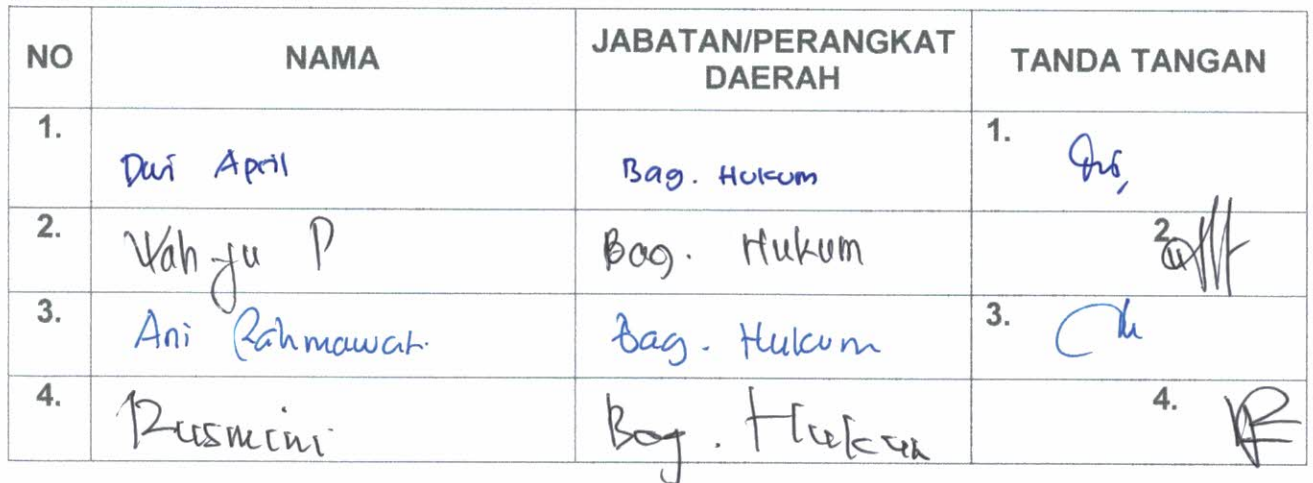 NO NAMA JABATAN/PERANGKAT DAERAH TANDA TANGAN
1. Dwi April Bag. Hukum 1.
2. Wahyu P Bag. Hukum 2.
3. Ani Rahmawati Bag. Hukum 3.
4. Rusmini Bag. Hukum 4.